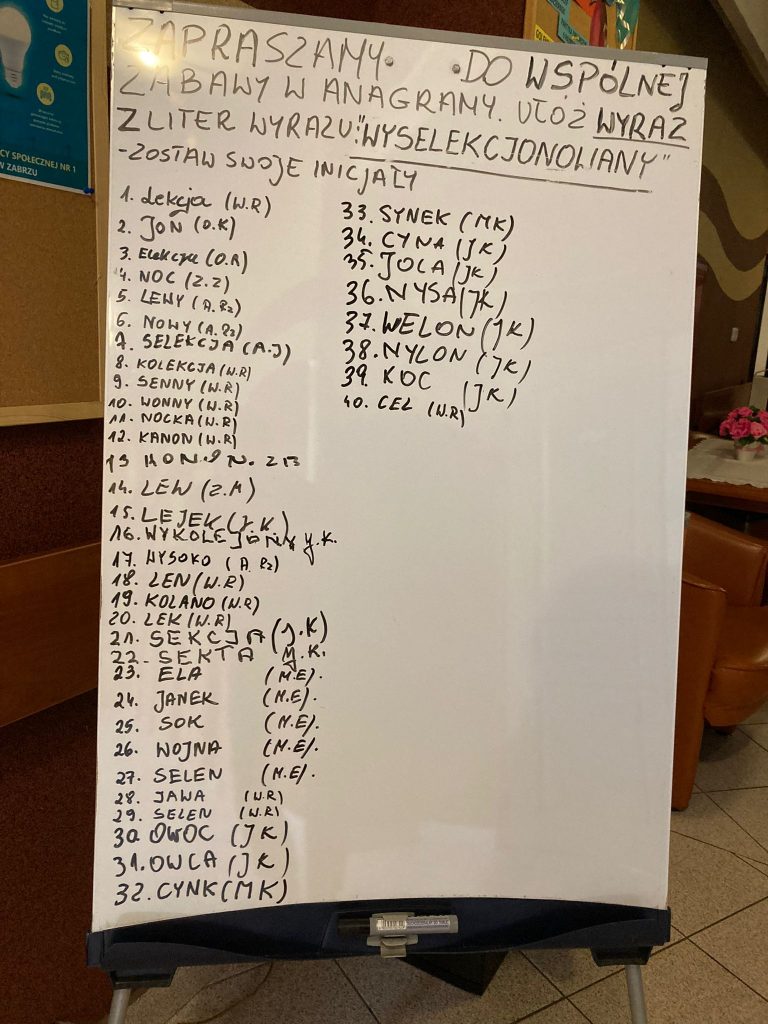 CY SPOŁECZNEJ NR 1
W ZABRZU
ZAPRASZAMY DO WSPÓLNEJ
ZABAWY W ANAGRAMY. UŁÓŻ WYRAZ
Z LITER WYRAZU: "WYSELEKCJONOWANY"
- ZOSTAW SWOJE INICJAŁY
1. Lekcja (W.R)
2. JON (O.K)
3. Elekcja (O.R)
4. NOC (Z.Z)
5. LEWY (A.Rz)
6. NOWY (A.Rz)
7. SELEKCJA (A.J)
8. KOLEKCJA (W.R)
9. SENNY (W.R)
10. WONNY (W.R)
11. NOCKA (W.R)
12. KANON (W.R)
13
14. LEW (Z.M)
15. LEJEK (J.K)
16. WYKOLEJONY J.K.
17. WYSOKO (A.Rz)
18. LEN (W.R)
19. KOLANO (W.R)
20. LEK (W.R)
21. SEKCJA (J.K)
22. SEKTA J.K.
23. ELA (M.E).
24. JANEK (M.E).
25. SOK (M.E).
26. WOJNA (M.E).
27. SELEN (M.E).
28. JAWA (W.R)
29. SELEN (W.R)
30 OWOC (JK)
31. OWCA (JK)
32. CYNK (MK)
33. SYNEK (MK)
34. CYNA (JK)
35. JOLA (JK)
36. NYSA (JK)
37. WELON (JK)
38. NYLON (JK)
39. KOC (JK)
40. CEL (W.R)